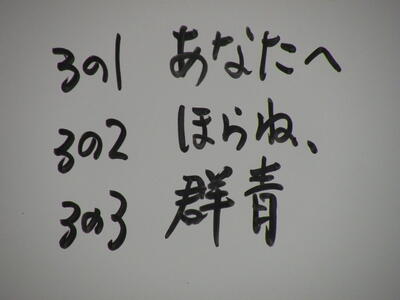 3の1 あなたへ
3の2 ほらね、
3の3 群青